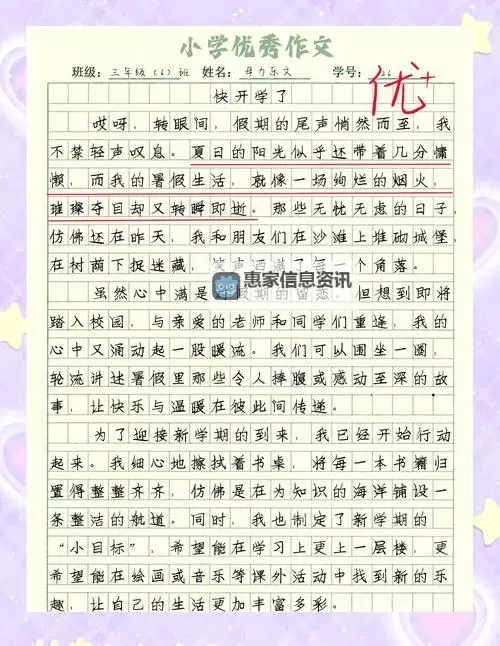 小学优秀作文
班级：三年级（6）班 姓名： 学号：26
优+
快开学了
哎呀，转眼间，假期的尾声悄然而至，我
不禁轻声叹息。夏日的阳光似乎还带着几分慵
懒，而我的暑假生活，就像一场绚烂的烟火，
璀璨夺目却又转瞬即逝。那些无忧无虑的日子，
仿佛还在昨天，我和朋友们在沙滩上堆砌城堡，
在树荫下捉迷藏，笑声洒满了每一个角落。
惠家信息资讯
虽然心中满是对假期的留恋，但想到即将
踏入校园，与亲爱的老师和同学们重逢，我的
心中又涌动起一股暖流。我们可以围坐一圈，
轮流讲述暑假里那些令人捧腹或感动至深的故
事，让快乐与温暖在彼此间传递。
为了迎接新学期的到来，我已经开始行动
起来。我细心地擦拭着书桌，将每一本书籍归
置得整整齐齐，仿佛是在为知识的海洋铺设一
条整洁的航道。同时，我也制定了新学期的
“小目标”，希望能在学习上更上一层楼，更
希望能在绘画或音乐等课外活动中找到新的乐
趣，让自己的生活更加丰富多彩。